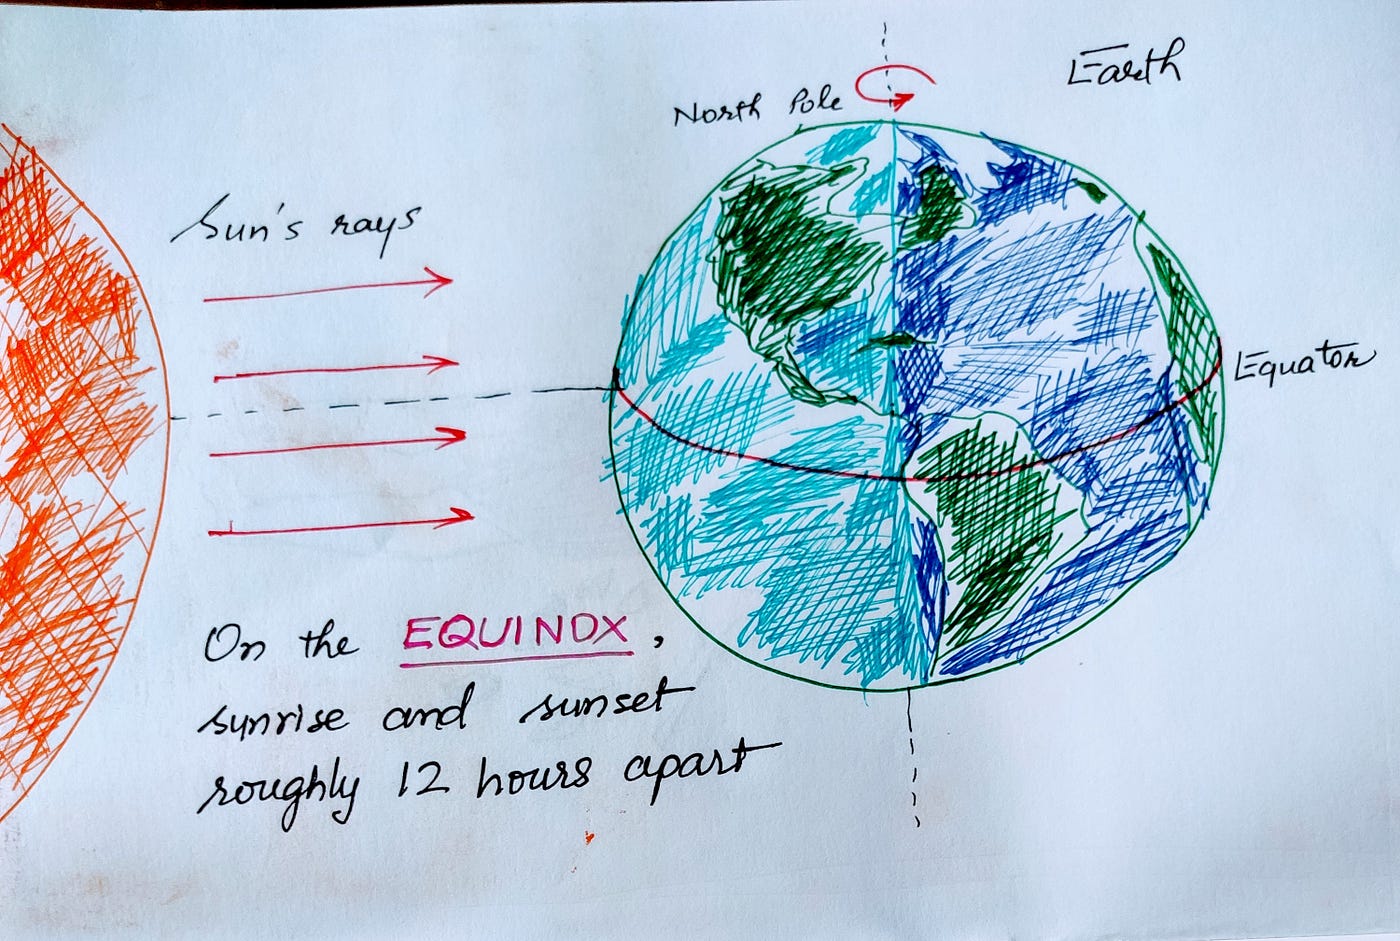 Earth
North Pole
Sun's rays
Equator
On the EQUINOX,
sunrise and sunset
roughly 12 hours apart